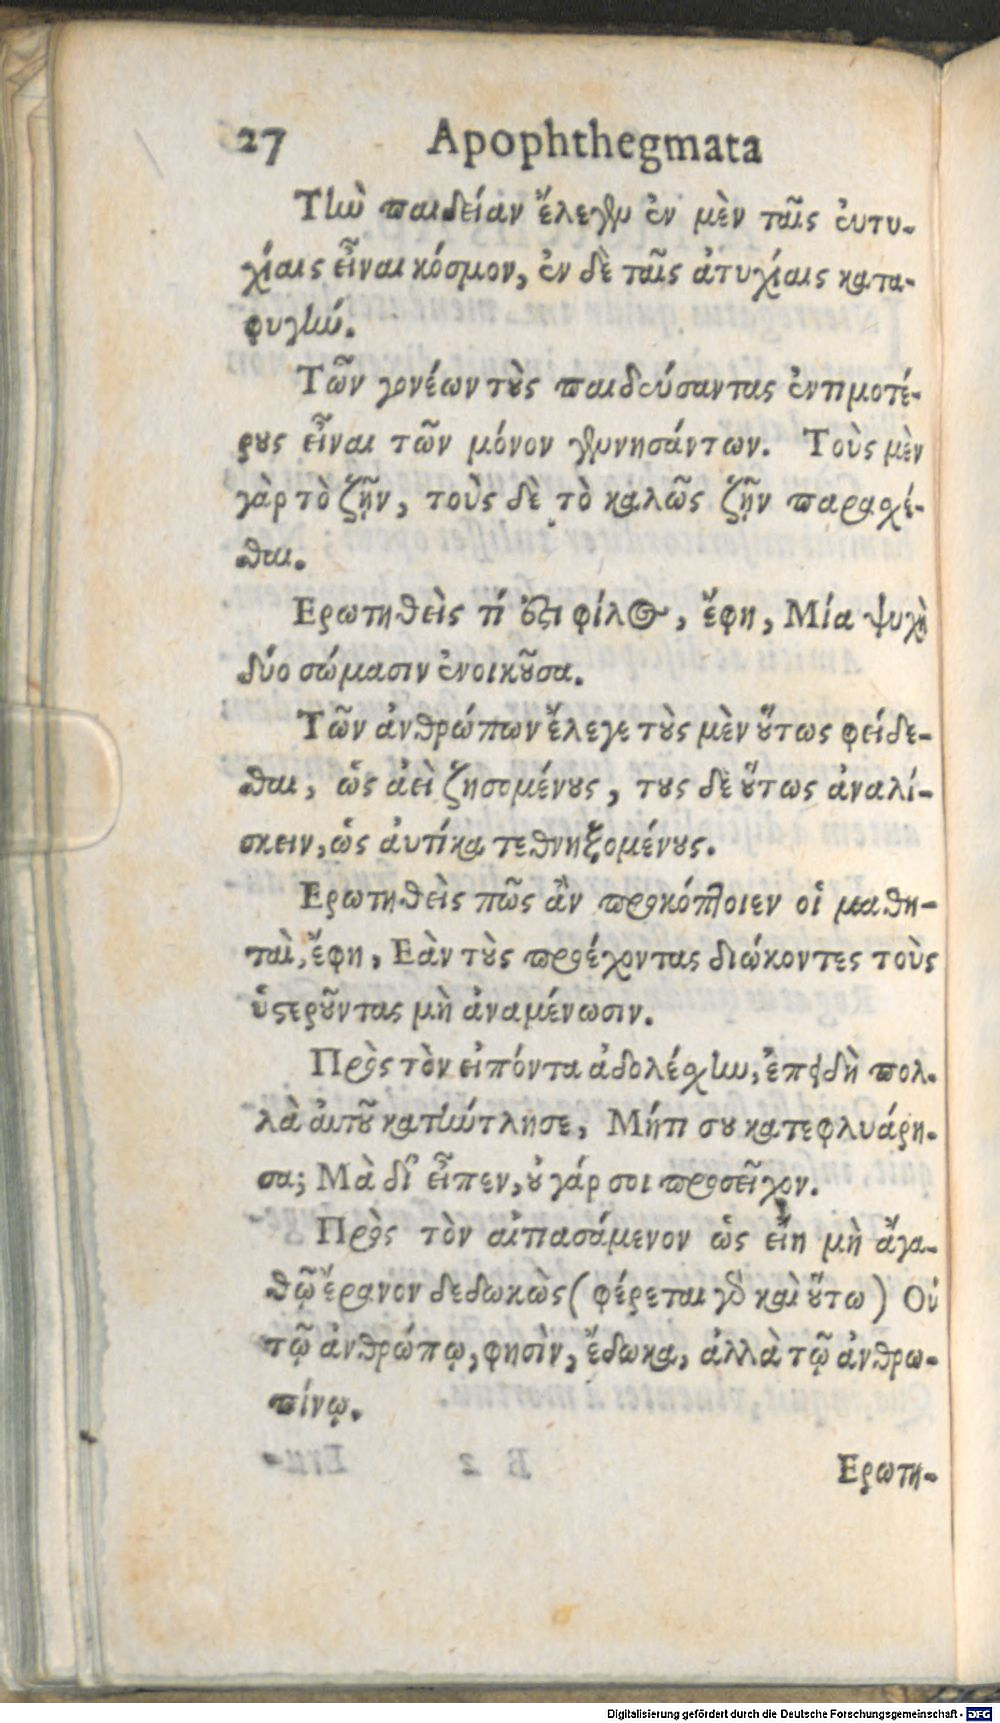 27 Apophthegmata
Τὴν παιδείαν ἔλεγεν ἐν μὲν ταῖς ἐυτυ-
χίαις εἶναι κόσμον, ἐν δὲ ταῖς ἀτυχίαις κατα-
φυγήν.
Τῶν γονέων τοὺς παιδεύσαντας ἐντιμοτέ-
ρους εἶναι τῶν μόνον γεννησάντων. Τοὺς μὲν
γὰρ τὸ ζῇν, τοὺς δὲ τὸ καλῶς ζῇν παραχέ-
σθαι.
Ερωτηθεὶς τί ἐστι φίλος, ἔφη, Μία ψυχὴ
δύο σώμασιν ἐνοικοῦσα.
Τῶν ἀνθρώπων ἔλεγε τοὺς μὲν οὕτως φείδε-
σθαι, ὡς ἀεὶ ζησομένους, τους δὲ οὕτως ἀναλί-
σκειν, ὡς ἀυτίκα τεθνηξομένους.
Ερωτηθεὶς πῶς ἂν προκόπτοιεν οἱ μαθη-
ταὶ, ἔφη, Εὰν τοὺς προέχοντας διώκοντες τοὺς
ὑστεροῦντας μὴ ἀναμένωσιν.
Πρὸς τὸν εἰπόντα ἀδολέσχην, ἐπειδὴ πολ-
λὰ ἀυτοῦ κατήντλησε, Μήτι σου κατεφλυάρη-
σα; Μὰ δί εἶπεν, οὐ γάρ σοι προσεῖχον.
Πρὸς τὸν αἰτιασάμενον ὡς εἴη μὴ ἄγα-
θῷ ἔρανον δεδωκὼς (φέρεται γὰρ καὶ οὕτω) Οὐ
τῷ ἀνθρώπῳ, φησὶν, ἔδωκα, ἀλλὰ τῷ ἀνθρω-
πίνῳ.
Ερωτη-
Digitalisierung gefördert durch die Deutsche Forschungsgemeinschaft - DFG